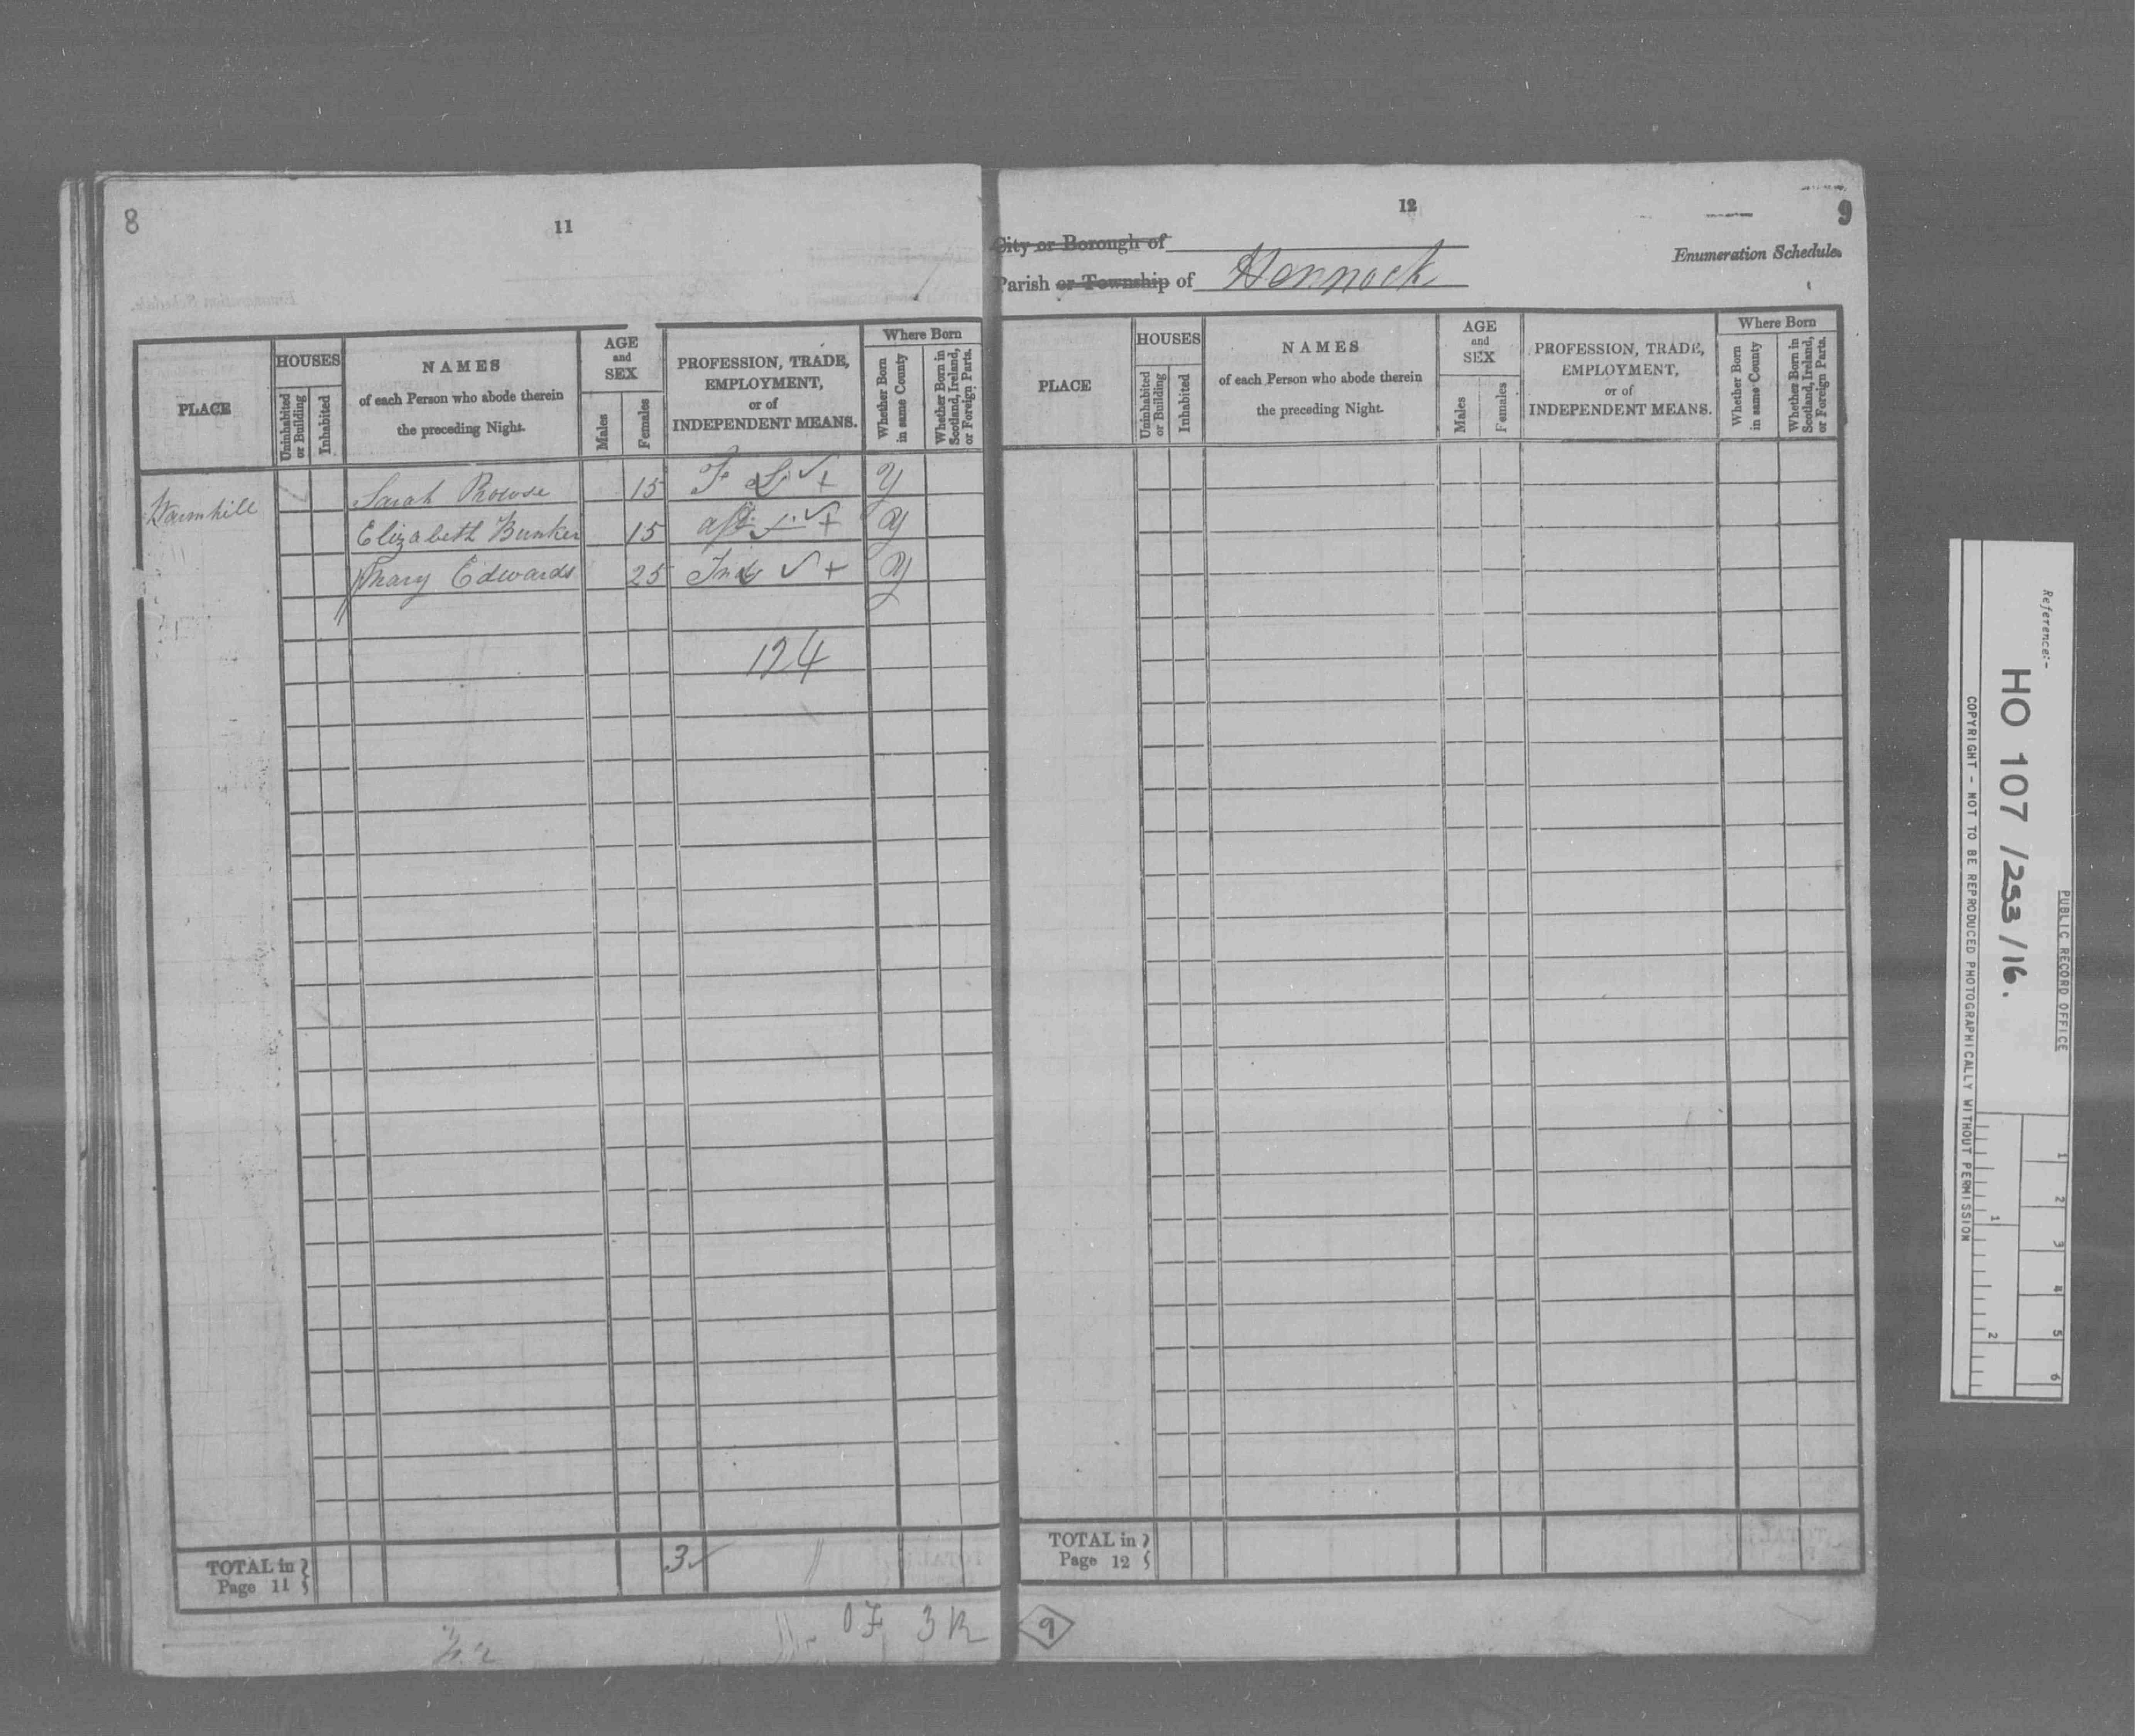 8
11
PLACE
HOUSES
Uninhabited or Building
Inhabited
NAMES
of each Person who abode therein
the preceding Night.
AGE
and
SEX
Males
Females
PROFESSION, TRADE,
EMPLOYMENT,
or of
INDEPENDENT MEANS.
Where Born
Whether Born in same County
Whether Born in Scotland, Ireland, or Foreign Parts.
Warmhill Sarah Prowse 15 F. S. ✓ + Y
Elizabeth Bunker 15 ap ✓ + Y
Mary Edwards 25 Ind ✓ + Y
124
TOTAL in
Page 11
3 ✓
12
9
City or Borough of
Enumeration Schedule.
Parish or Township of Hennock
PLACE
HOUSES
Uninhabited or Building
Inhabited
NAMES
of each Person who abode therein
the preceding Night.
AGE
and
SEX
Males
Females
PROFESSION, TRADE,
EMPLOYMENT,
or of
INDEPENDENT MEANS.
Where Born
Whether Born in same County
Whether Born in Scotland, Ireland, or Foreign Parts.
TOTAL in
Page 12
9
PUBLIC RECORD OFFICE
Reference:-
HO 107 /253/16.
COPYRIGHT - NOT TO BE REPRODUCED PHOTOGRAPHICALLY WITHOUT PERMISSION
1 2 3 4 5 6
1 2